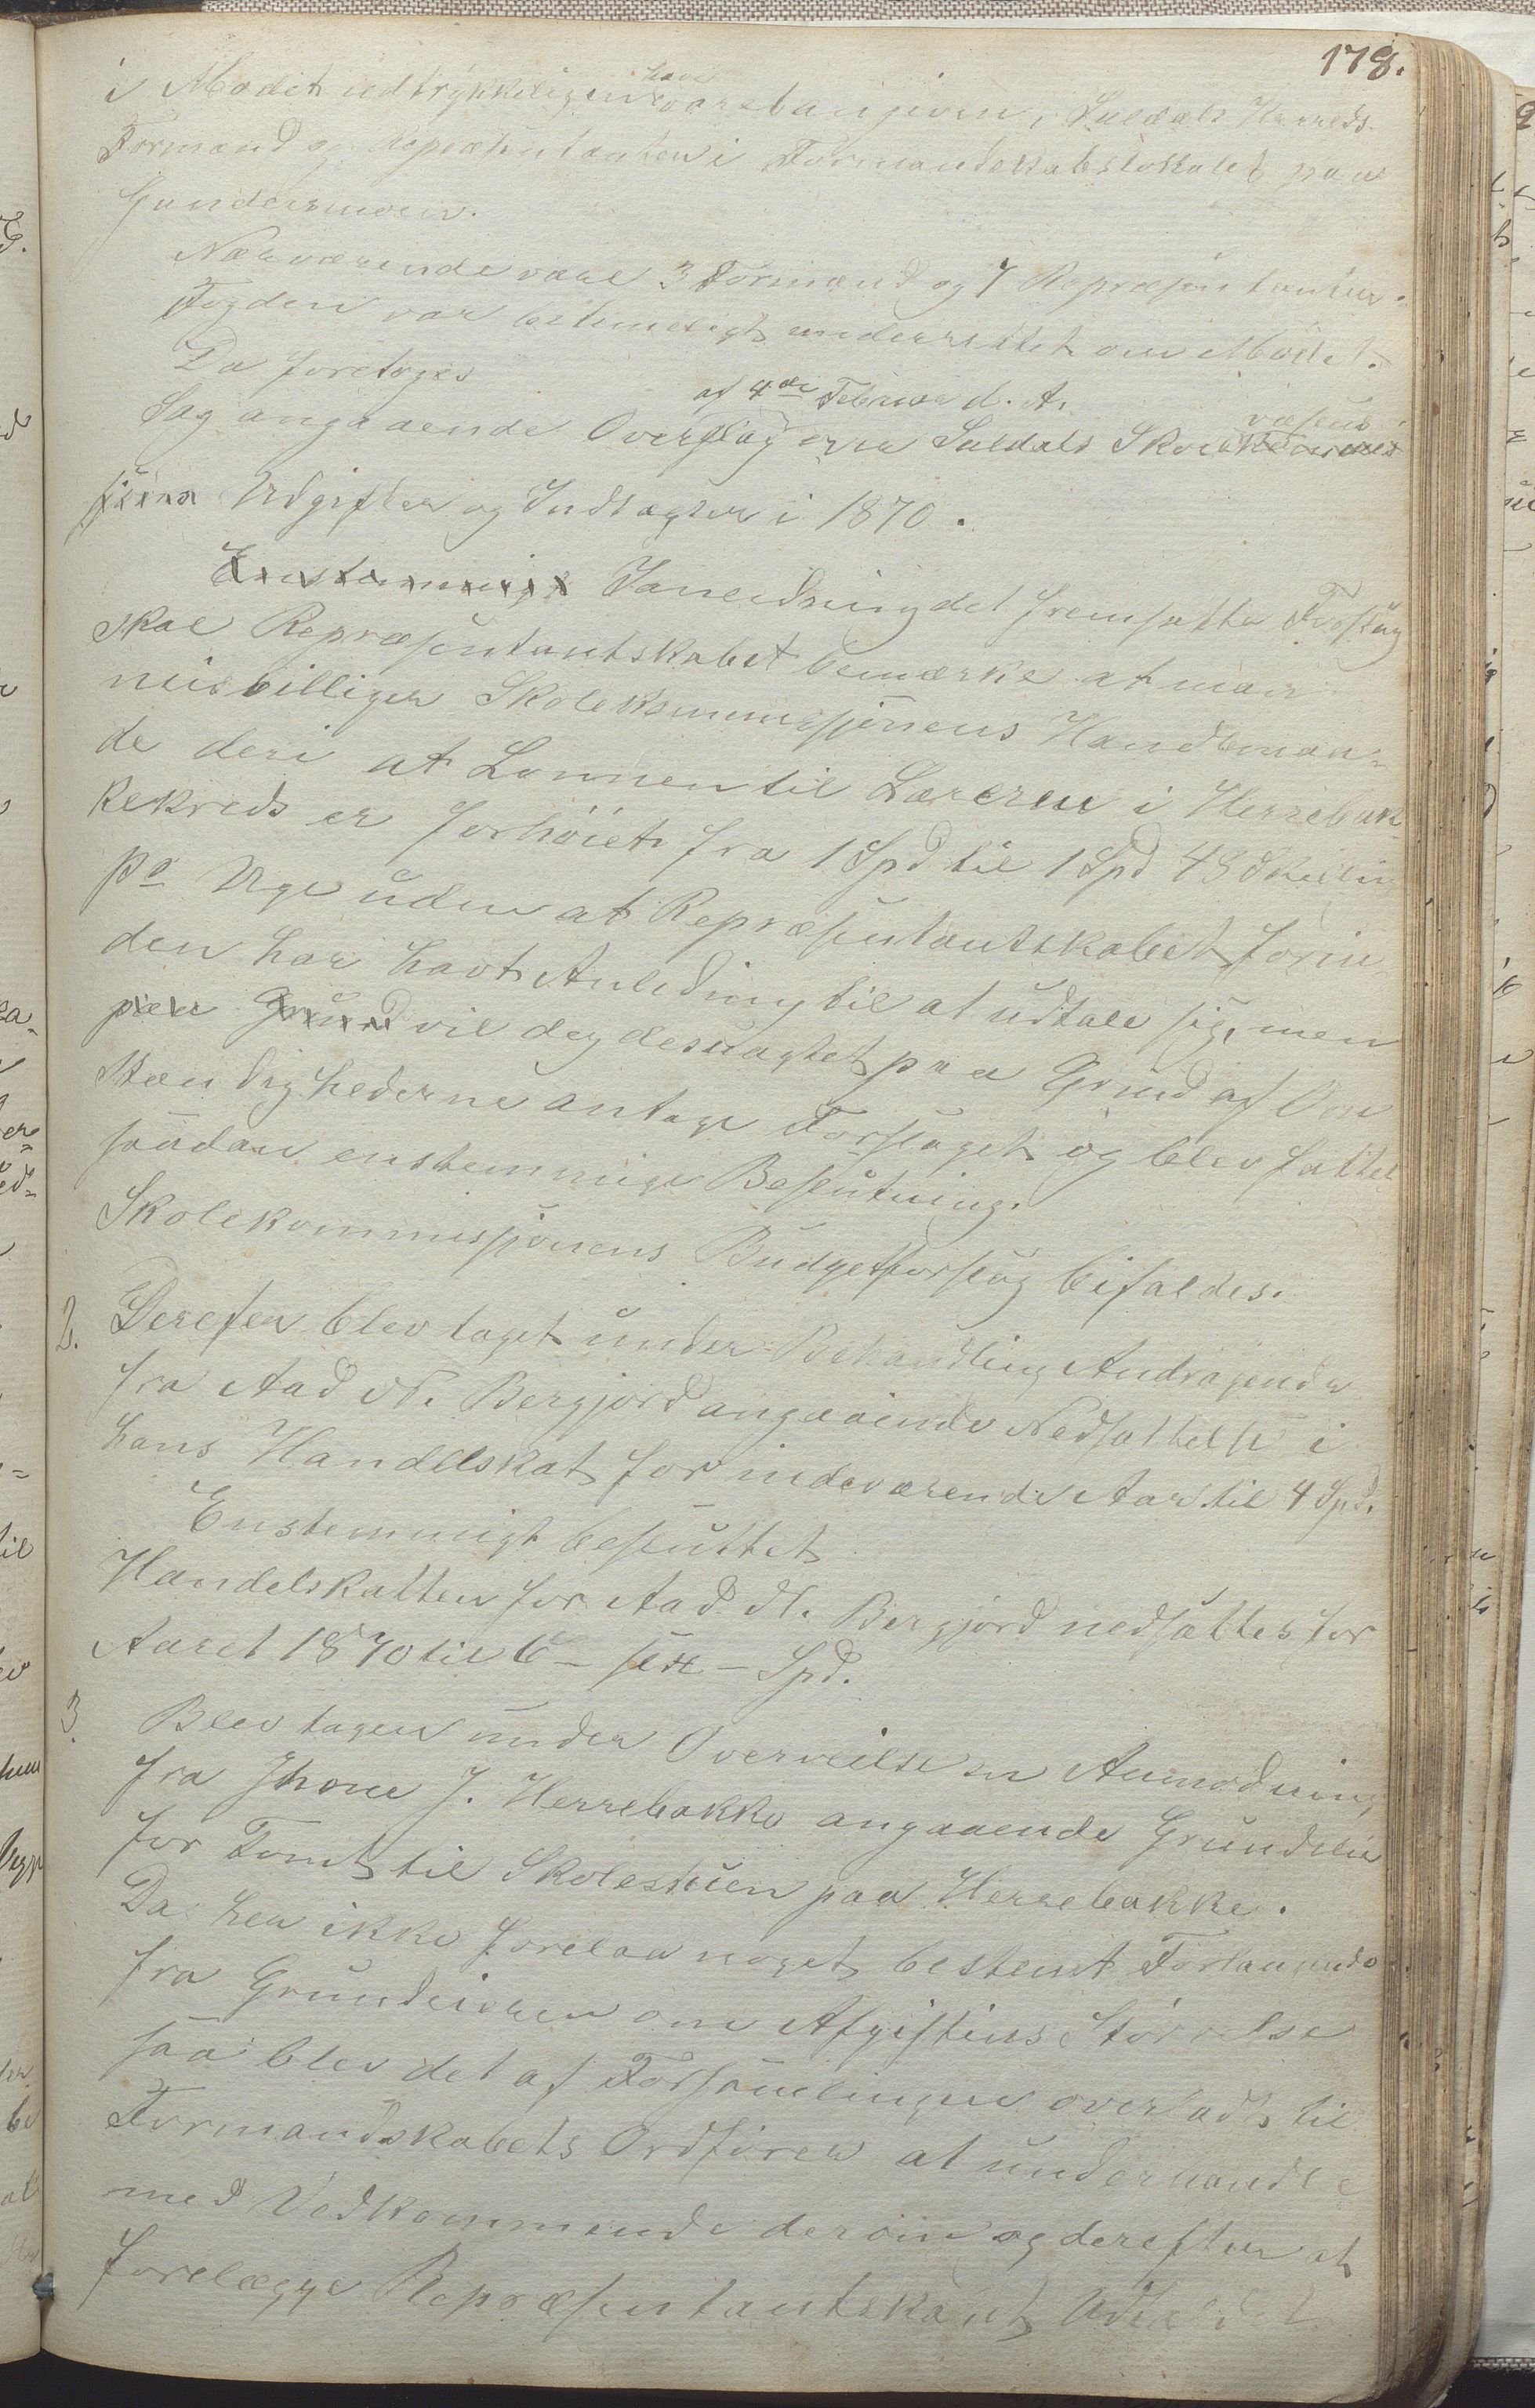 178.
i Mødet udtrykkeligen have været angiven, Suldals Herreds
Formænd og Repræsentanter i Formandskabslokalet paa
Gundersmoen.
Nærværende vare 3 Formænd og 7 Repræsentanter.
Fogden var betimeligt underrettet om Mødet.
Da foretoges
af 4de Februar d. A.
Sag angaaende Overslag over Suldals Skole væsens
Udgifter og Indtægter i 1870.
Enstemmigt I anledning det fremsatte Forslag
skal Repræsentantskabet bemærke at man
misbilliger Skolekommissjonens Handlemaa-
de deri at Lønnen til Læreren i Herrebak-
kekreds er forhøiet fra 1 Spd til 1 Spd 48 Skilling
pr Uge uden at Repræsentantskabet forin-
den har havt Anledning til at udtale sig, men
paa Grund vil dog desuagtet paa Grund af Om
stændighederne antage Forslaget og blev fattet
saadan enstemmige Beslutning.
Skolekommissjonens Budgetforslag bifaldes.
2. Derefter blev taget under Behandling Andragende
fra Aad N. Bergjord angaaende Nedsættelse i
hans Handelskat for indeværende Aar til 4 Spd.
Enstemmigt besluttet
Handelskatten for Aad N. Bergjord nedsættes for
Aaret 1870 til 6 – sex – Spd.
3. Blev tagen under Overveielse en Anmodning
fra J. Herrebakke angaaende Grundleie
for Tomt til Skolestuen paa Herrebakke.
Da her ikke forelaa noget bestemt Forlangende
fra Grundeieren om Afgiftens Størrelse
saa blev det af Forsamlingen overladt til
Formandskabets Ordfører at underhandle
med Vedkommende derom og derefter at
forelægge Repræsentantskabet Udfaldet